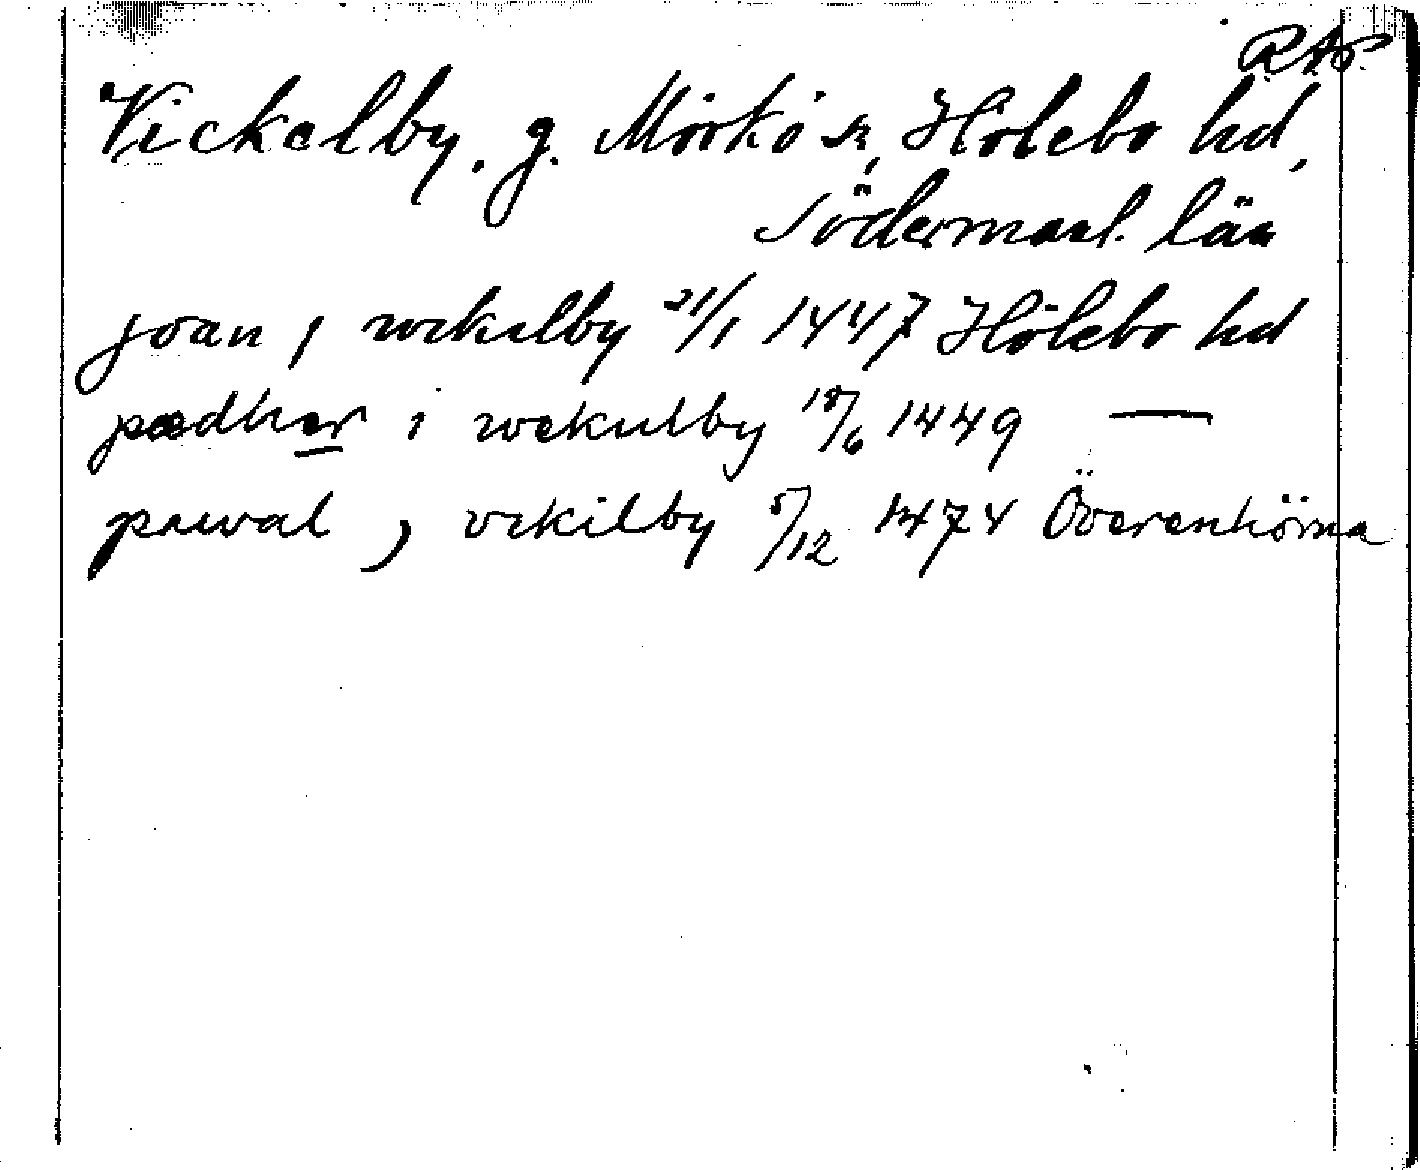 RAp.
Vickelby. g. Mörkö sn, Hölebo hd,
Södermanl. län
joan j wekelby 21/1 1447 Hölebo hd
pædher i wekulby 18/6 1449 —
pawal j vekilby 5/12 1474 Överenhörna